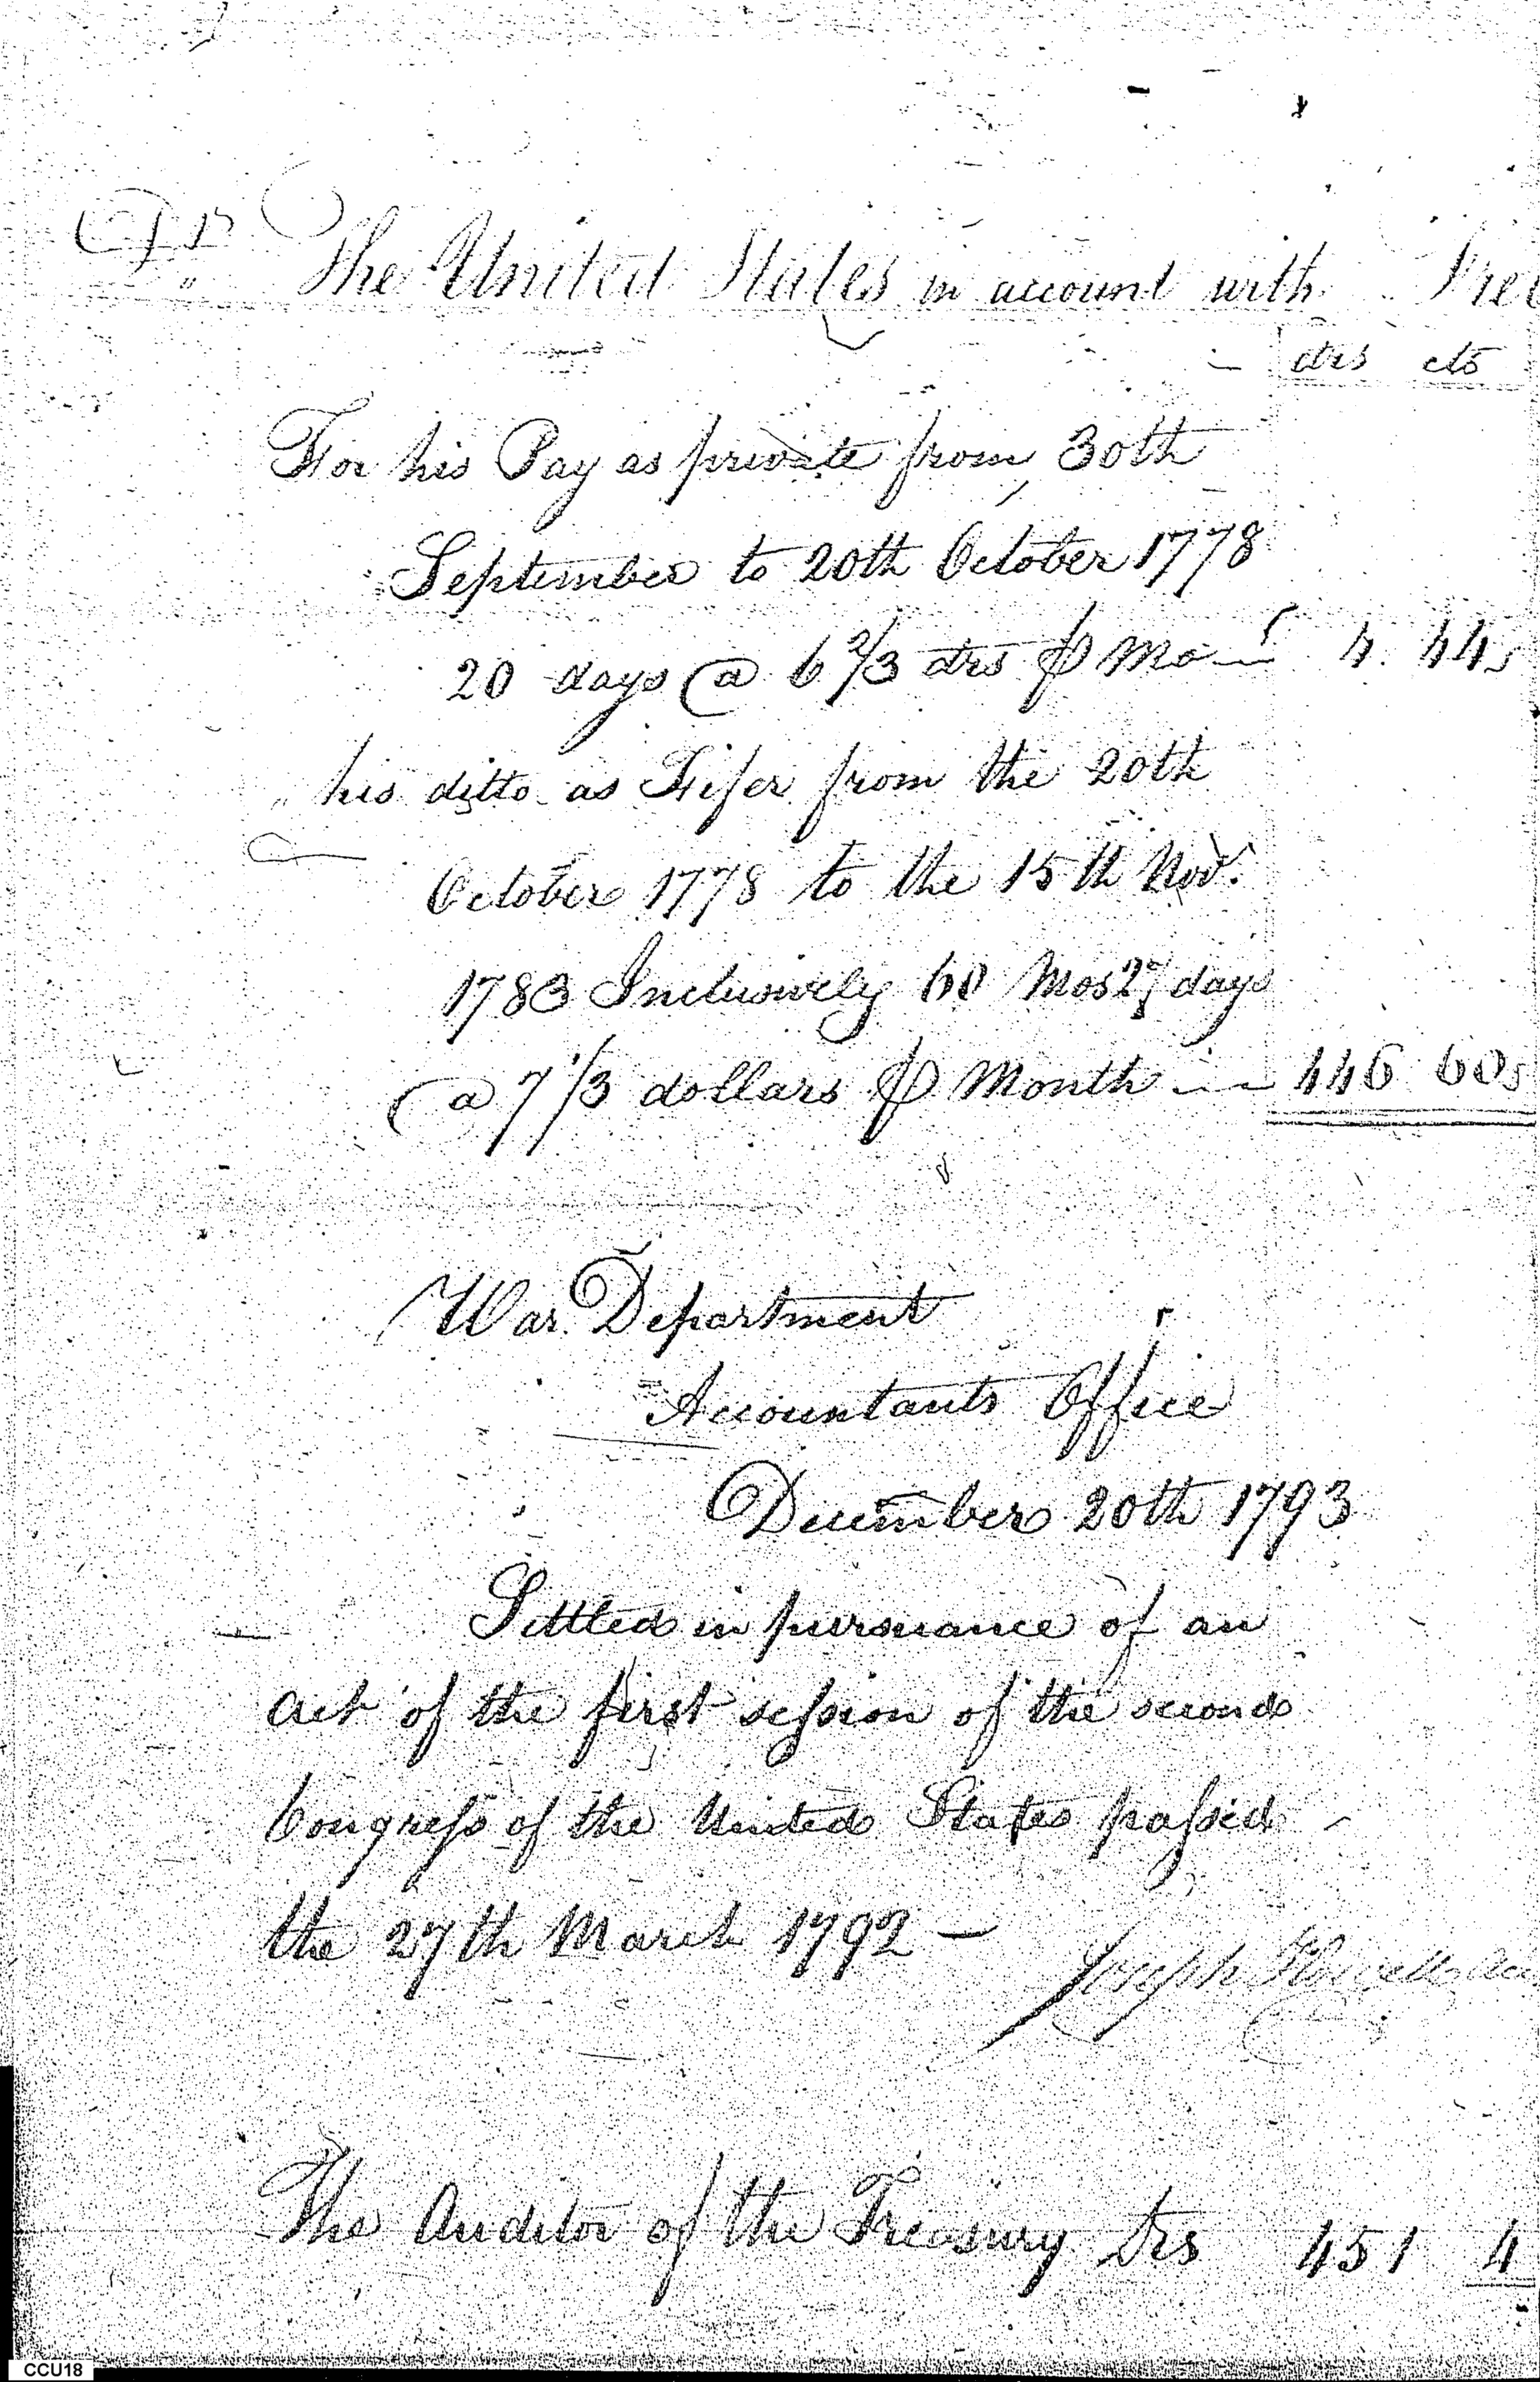 Dr The United States in account with
drs cts
For his Pay as private from 30th
September to 20th October 1778
20 days @ 6 2/3 drs ⅌ Mo 4. 44
" his ditto as Fifer from the 20th
October 1778 to the 15th Nov.
1783 Inclusively 60 Mos 27 days
@ 7 1/3 dollars ⅌ Month 446 60
War Department
Accountants Office
December 20th 1793
Settled in pursuance of an
act of the first session of the second
Congress of the United States passed
the 27th March 1792 —
Joseph Howell
The Auditor of the Treasury drs 451 4
CCU18